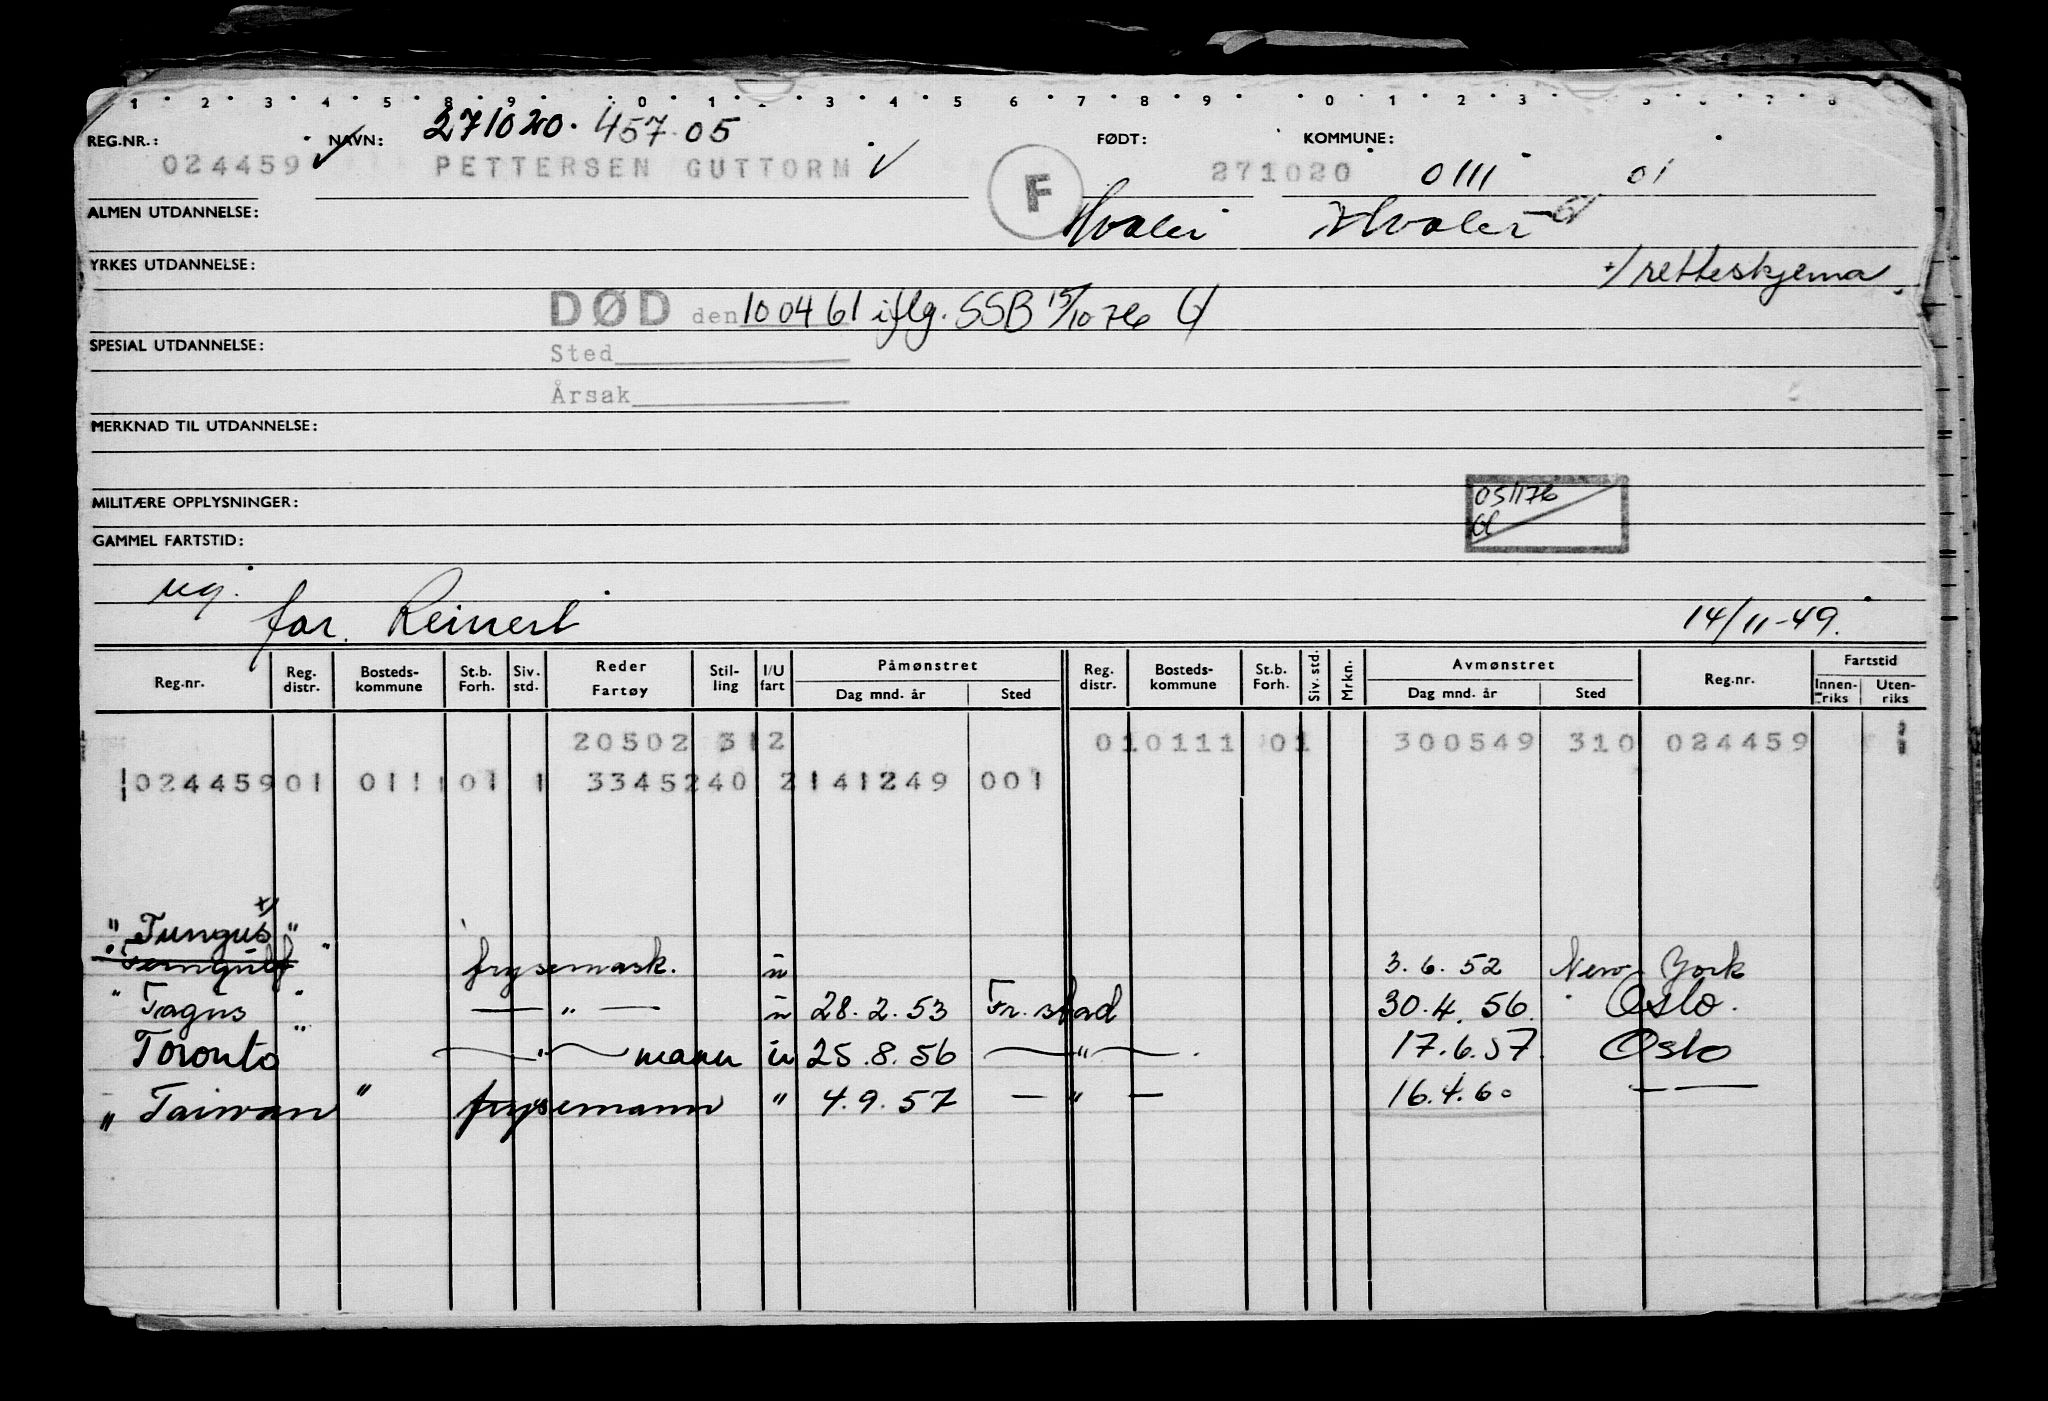 1 2 3 4 5 8 9 0 1 2 3 4 5 6 7 8 9 0 1 2 3 5 6 7 8
271020. 457.05
REG.NR.: NAVN: FØDT: KOMMUNE:
024459 PETTERSEN GUTTORM F 271020 0111 01
ALMEN UTDANNELSE: Hvaler Hvaler
YRKES UTDANNELSE: +/ retteskjema.
DØD den 10 04 61 iflg. SSB 15/10 76
SPESIAL UTDANNELSE:
Sted
Årsak
MERKNAD TIL UTDANNELSE:
MILITÆRE OPPLYSNINGER: 051176
GAMMEL FARTSTID:
ug.
far. Reinert 14/11-49.
Reg.nr. Reg. distr. Bosteds-kommune St.b. Forh. Siv. std. Reder Fartøy Stil-ling I/U fart Påmønstret Dag mnd. år Sted Reg. distr. Bosteds-kommune St.b. Forh. Siv. std. Mrkn. Avmønstret Dag mnd. år Sted Reg.nr. Fartstid Innen-riks Uten-riks
20502 312 010111 01 300549 310 024459 1
1024459 01 0111 01 1 3345240 2 141249 001
" Tungus +/ "
" Ferngulf " frysemask. u 3.6.52 New York
" Tagus " — " — u 28.2.53 Fr.stad 30.4.56. Oslo.
Toronto " — " — mann u 25.8.56 — " — 17.6.57. Oslo
" Taiwan " frysemann " 4.9.57 — " — 16.4.60 — —